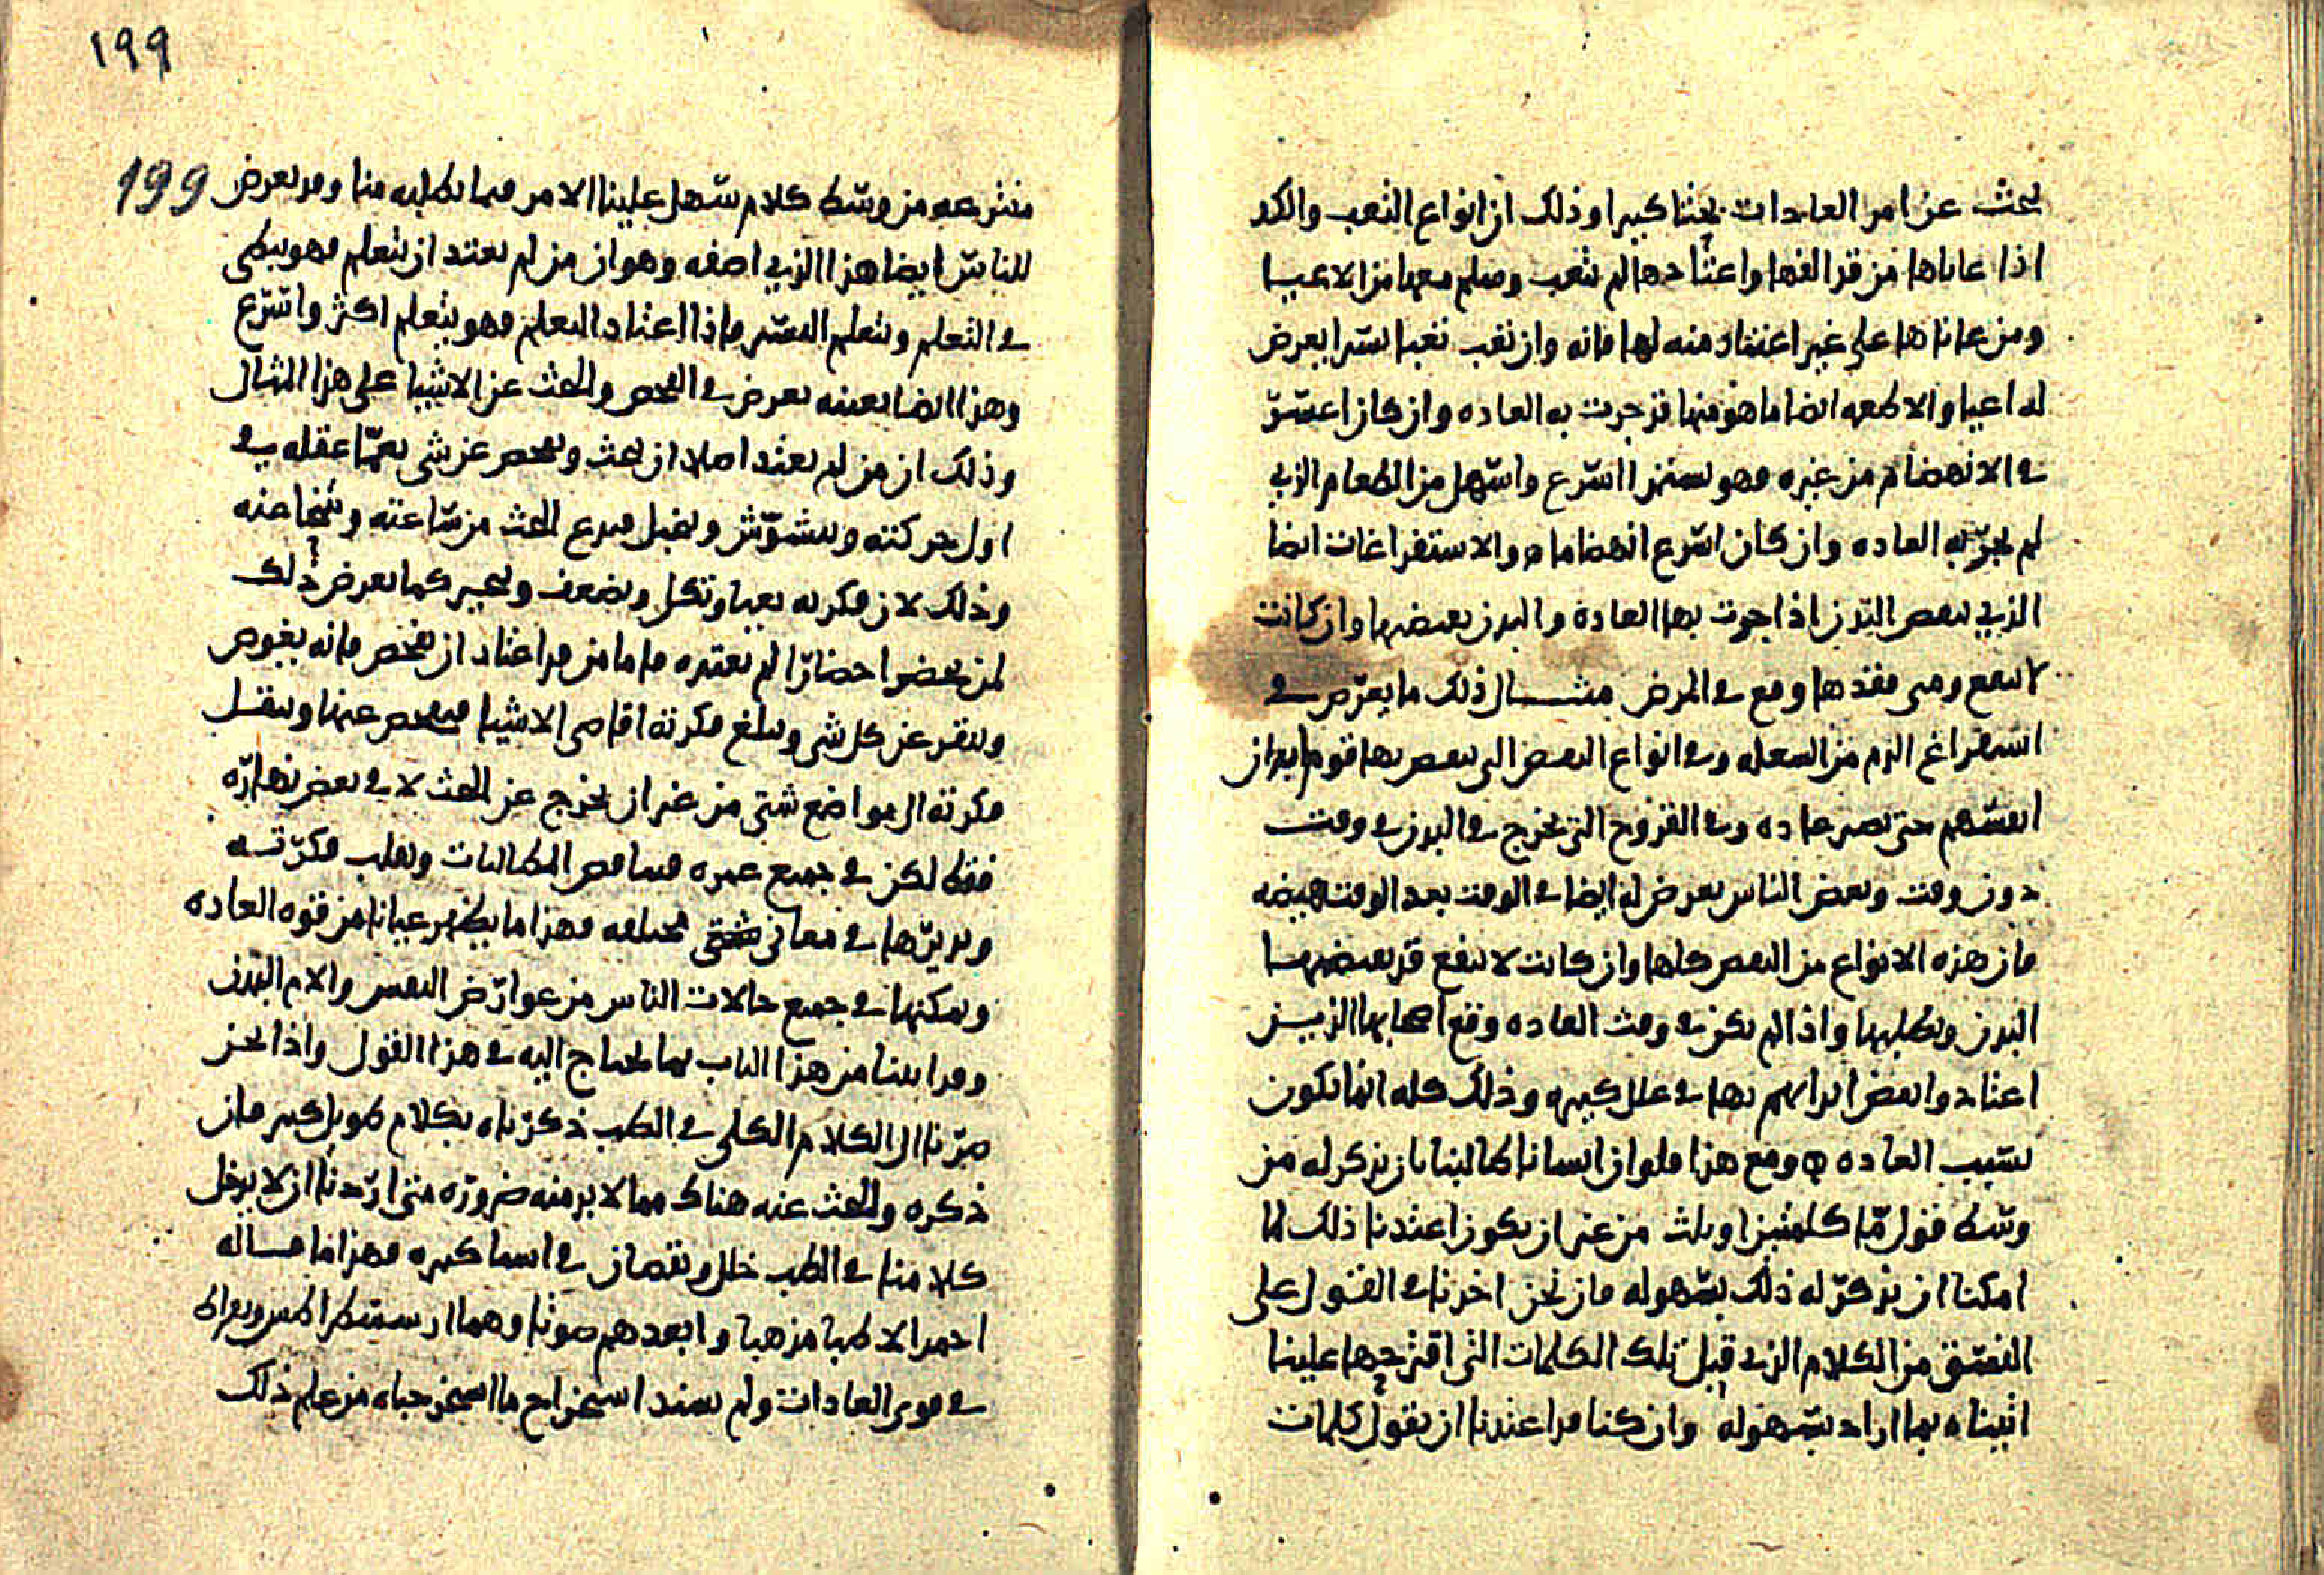 بحث عن امر العادات بحثا كبيرا وذلك ان انواع التعب والكد
اذا عاناها من قد الفها واعتادها لم يتعب وسلم معها من الاعيا
ومن عاناها على غير اعتياد منه لها فانه وان تعب تعبا يسيرا يعرض
له اعيا والاطعمه ايضا ما هو منها قد جرت به العاده وان كان اعسر
في الانهضام من غيره فهو يستمرا اسرع واسهل من الطعام الذي
لم تجر به العاده وان كان اسرع انهضاما ه والاستفراغات ايضا
الذي لبعض البدن اذا جرت بها العادة والبدن بعضها وان كانت
لا تنفع ومتى فقدها وقع في المرض مثال ذلك ما يعرض في
استفراغ الدم من السفله وفي انواع التي بها قوم ابدان
انفسهم حتى تصير عاده وفي القروح التي تخرج في البدن في وقت
دون وقت وبعض الناس يعرض له ايضا في الوقت بعد الوقت هيضه
فان هذه الانواع من كلها وان كانت لا تنفع قد
البدن ويطلبها واذا لم تكن في وقت العاده وقع اصحابها الذين
اعتادوا ابدانهم بها في علل كبيره وذلك كله انما يكون
بسبب العاده ه ومع هذا فلو ان انسانا طالبنا بان نذكر له من
وسط قول ما كلمتين او ثلث من غير ان يكون اعتدنا ذلك لما
امكننا ان نذكر له ذلك بسهوله فان نحن اخذنا في القول على
النسق من الكلام الذي قبل تلك الكلمات التي اقترحها علينا
اتيناه بما اراد بسهوله وان كنا قد اعتدنا ان نقول كلمات
١٩٩
199
ننتزعه من وسط كلام سهل علينا الامر فيما يطلبه منا وقد يعرض
للناس ايضا هذا الذي اصفه وهو ان من لم يعتد ان يتعلم فهو يبطي
في التعلم ويتعلم اليسير فاذا اعتاد التعلم فهو يتعلم اكثر واسرع
وهذا ايضا بعينه يعرض في الفحص والبحث عن الاشيا على هذا المثال
وذلك ان من لم يعتد اصلا ان يبحث ويفحص عن شي يعمى عقله في
اول حركته ويتشوش ويخبل فيدع البحث من ساعته ويتنحا عنه
وذلك لان فكرته تعيا وتكل وتضعف وتتحير كما يعرض ذلك
لمن يحضر احضارا لم يعتده فاما من قد اعتاد ان يفحص فانه يغوص
وينقر عن كل شي وتبلغ فكرته اقاصي الاشيا فيفحص عنها وينقل
فكرته الى مواضع شتى من غير ان يخرج عن البحث لا في بعض نهاره
فقط لكن في جميع عمره فيما فحص المطالبات ويقلب فكرته
ويديرها في معاني شتى مختلفه فهذا ما يظهر عيانا من قوه العاده
وتمكنها في جميع حالات الناس من عوارض النفس والام البدن
وقد اتينا من هذا الباب بما يحتاج اليه في هذا القول واذا نحن
صرنا الى الكلام الكلي في الطب ذكرناه بكلام طويل كبير فان
ذكره والبحث عنه هناك مما لا بد منه ضروره متى اردنا ان لا يدخل
كلامنا في الطب خلل ونقصان في اشيا كبيره فهذا ما قاله
احمد الاطبا مذهبا وابعدهم صوتا وهما ارسسطراطس وبقراط
في قوى العادات ولم نستخراج ما استخرجناه من علم ذلك